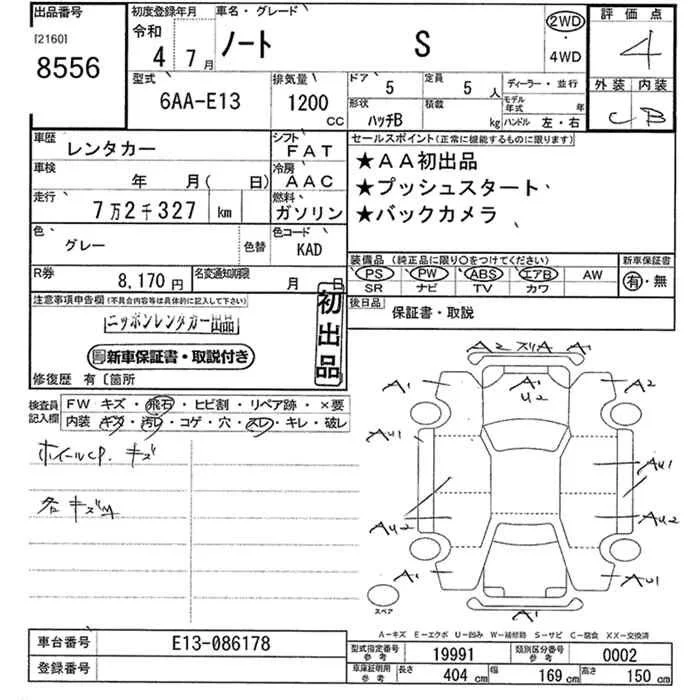 出品番号 初度登録年月 車名・グレード 評価点
[2160] 令和
8556 4年 7月 ノート S 2WD・4WD 4
型式 排気量 ドア 5 定員 5人 ディーラー・並行 外装 内装
6AA-E13 1200cc 形状 ハッチB 積載 kg モデル年式 年 ハンドル 左・右 C B
車歴 レンタカー シフト FAT セールスポイント(正常に機能するものに限ります)
車検 年 月( 日) 冷房 AAC ★AA初出品
走行 7万2千327 km 燃料 ガソリン ★プッシュスタート
★バックカメラ
色 グレー 色替 色コード KAD 装備品(純正品に限り○をつけてください) 新車保証書
PS PW ABS エアB AW 有・無
R券 8,170円 名変通知期限 月 日 SR ナビ TV カワ
注意事項申告欄(不具合内容等は具体的に記入して下さい) 初出品 後日品 保証書・取説
ニッポンレンタカー出品
新車保証書・取説付き
修復歴 有 〔箇所
検査員記入欄 FW キズ・飛石・ヒビ割・リペア跡・×要
内装 キズ・汚レ・コゲ・穴・スレ・キレ・破レ
ホイールCP. キズ
各キズM
A2 スリA A1
A1 A1 U2 A2
AU1 AU1
AU2 AU2
A1 AU1
スペア A1
A-キズ E-エクボ U-凹み W-補修跡 S-サビ C-腐食 XX-交換済
車台番号 E13-086178 型式指定番号 参考 19991 類別区分番号 参考 0002
登録番号 車庫証明用 参考 長さ 404cm 幅 169cm 高さ 150cm